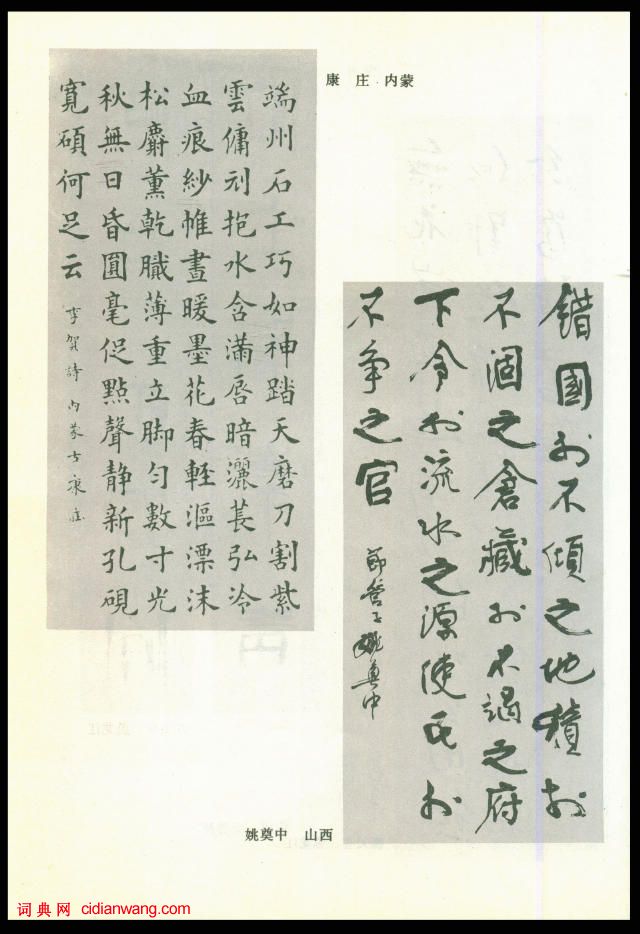 康 庄 内蒙
端州石工巧如神踏天磨刀割紫
雲傭刓抱水含滿唇暗灑萇弘冷
血痕紗帷晝暖墨花春輕漚漂沫
松麝薰乾膩薄重立脚勻數寸光
秋無日昏圓毫促點聲静新孔硯
寬碩何足云
李賀詩内蒙古康庄
錯國於不傾之地積於
不涸之倉藏於不竭之府
下令於流水之源使民於
不争之官
節管子姚奠中
姚奠中 山西
词典网 cidianwang.com